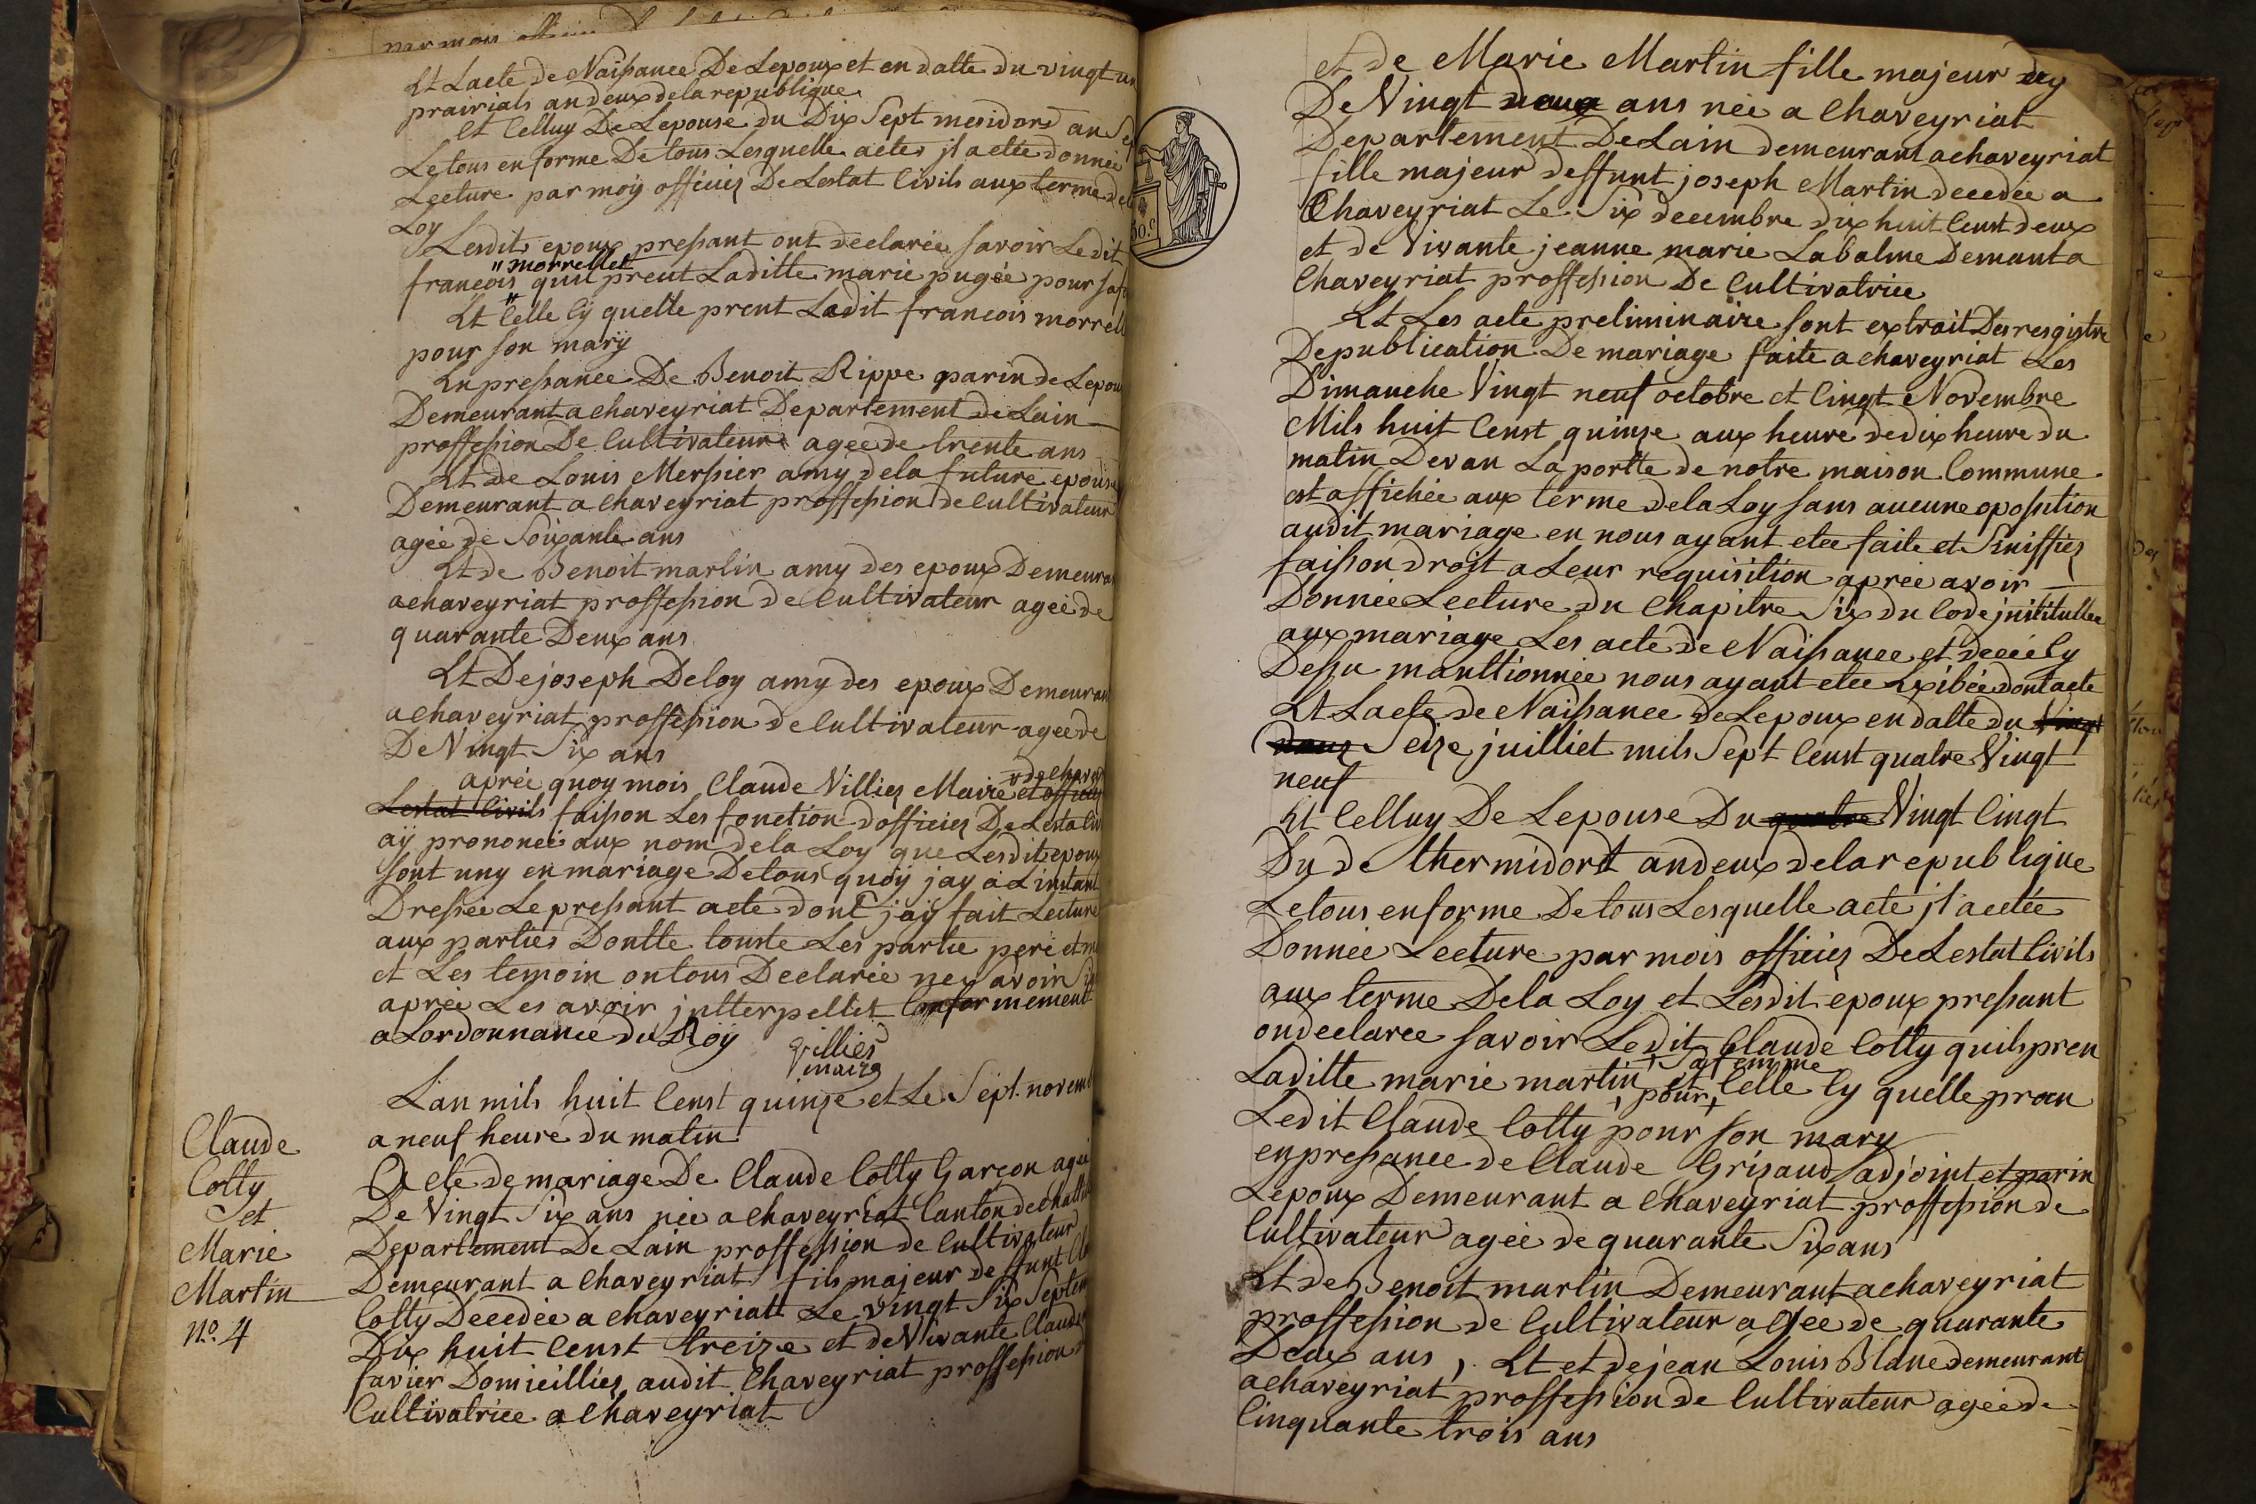 Et Lacte de Naissance De Lepoux et en datte du vingt un
prairials an deux de la republique
Et Celluy De Lepouse du Dix Sept mesidord an Sep
Le tous en forme De tous Lesquelle actes jl a etée donnée
Lecture par moÿ officier De Lestat Civils aux terme de
Loy
Lesdits epoux pressant ont declarée savoir Le dit
" morrellet
francois quil prent Laditte marie pugée pour sa
Et Celle Cÿ quelle prent Ledit francois morrell
pour son marÿ
En pressance De Benoit Rippe parin de Lepoux
Demeurant a chaveyriat Departement de Lain
proffession De Cultivateure agee de trente ans
Et de Louis Merssier amy de la future epouse
Demeurant a chaveyriat proffession de Cultivateur
agée de Soixante ans
Et de Benoit marlin amy des epoux Demeuran
a chaveyriat proffession de Cultivateur ageé de
quarante Deux ans
Et De joseph Deloy amy des epoux Demeuran
a chaveyriat proffession de Cultivateur ageé de
De Vingt Six ans
de chavey
aprée quoy mois Claude Villier Maire et officier
Lestat Civils faison Les fonction dofficier De Lestat Civ
aÿ prononcé aux nom de la Loy que Lesdits epoux
sont uny en mariage De tous quoÿ jay a L instant
Dressée Le pressant acte dont jaÿ fait Lecture
aux parties Dontte touste Les partie peré et m
et Les temoin on tous Declarée ne savoir Si
aprée Les avoir jntterpellet Conformement
a Lordonnance du Roÿ
Villier
maire
Lan mils huit Censt quinze et Le Sept novem
a neuf heure du matin
Claude
Cotty
et
Marie
Martin
no. 4
Acte de mariage De Claude Cotty Garçon ageé
De Vingt Six ans née a chaveyriat Canton de chatti
Departement De Lain proffession de Cultivateur
Demeurant a Chaveyriat fils majeur deffunt Cl
Cotty Decedée a chaveyriatt Le vingt Six Septem
Dix huit Censt treize et de Vivante Claud
favier Domicillier audit Chaveyriat proffession d
Cultivatrice a Chaveyriat
et de Marie Martin fille majeur
De Vingt deux ans née a Chaveyriat
Departement De Lain demeurant a chaveyriat
fille majeur deffunt joseph Martin decedée a
Chaveyriat Le Six decembre dix huit Censt deux
et de Vivante jeanne marie Labalme Demanta
Chaveyriat proffession De Cultivatrice
Et Les acte preliminaire sont extrait Des resgistre
De publication De mariage faite a chaveyriat Les
Dimanche Vingt neuf octobre et Cinqt Novembre
Mils huit Censt quinze aux heure de dix heure du
matin Devan La portte de notre maison Commune
est affichée aux terme de la Loy sans aucune opossition
audit mariage en nous ayant etee faite et Siniffier
faisson droit a Leur requisition aprée avoir
Donnée Lecture du Chapitre Six du Code jnstitullee
aux mariage Les acte de Naissance et decée Cy
Dessu manttionnée nous ayant etee Exibée dont acte
Et Lacte de Naissance de Lepoux en datte du Vingt
deux Seize juilliet mils Sept Censt quatre Vingt
neuf
Et Celluy De Lepouse Du quatre Vingt Cinqt
Du de thermidort an deux de la republique
Le tous en forme De tous Lesquelle acte jl a etée
Donnée Lecture par mois officier De Lestat Civils
aux terme De la Loy et Lesdit epoux pressant
on declaree savoir Le dit Claude Cotty quils pren
sa femme
Laditte marie martin et Celle Cy quelle pran
pour
Ledit Claude Cotty pour son mary
en pressance de Claude Grisaud adjoint et parin
Lepoux Demeurant a Chaveyriat proffession de
Cultivateur ageé de quarante Six ans
Et de Benoit marlin Demeurant a chaveyriat
proffession de Cultivateur agée de quarante
Deux ans , Et et de jean Louis Blanc demeurant
a chaveyriat proffession de Cultivateur ageé de
Cinquante trois ans